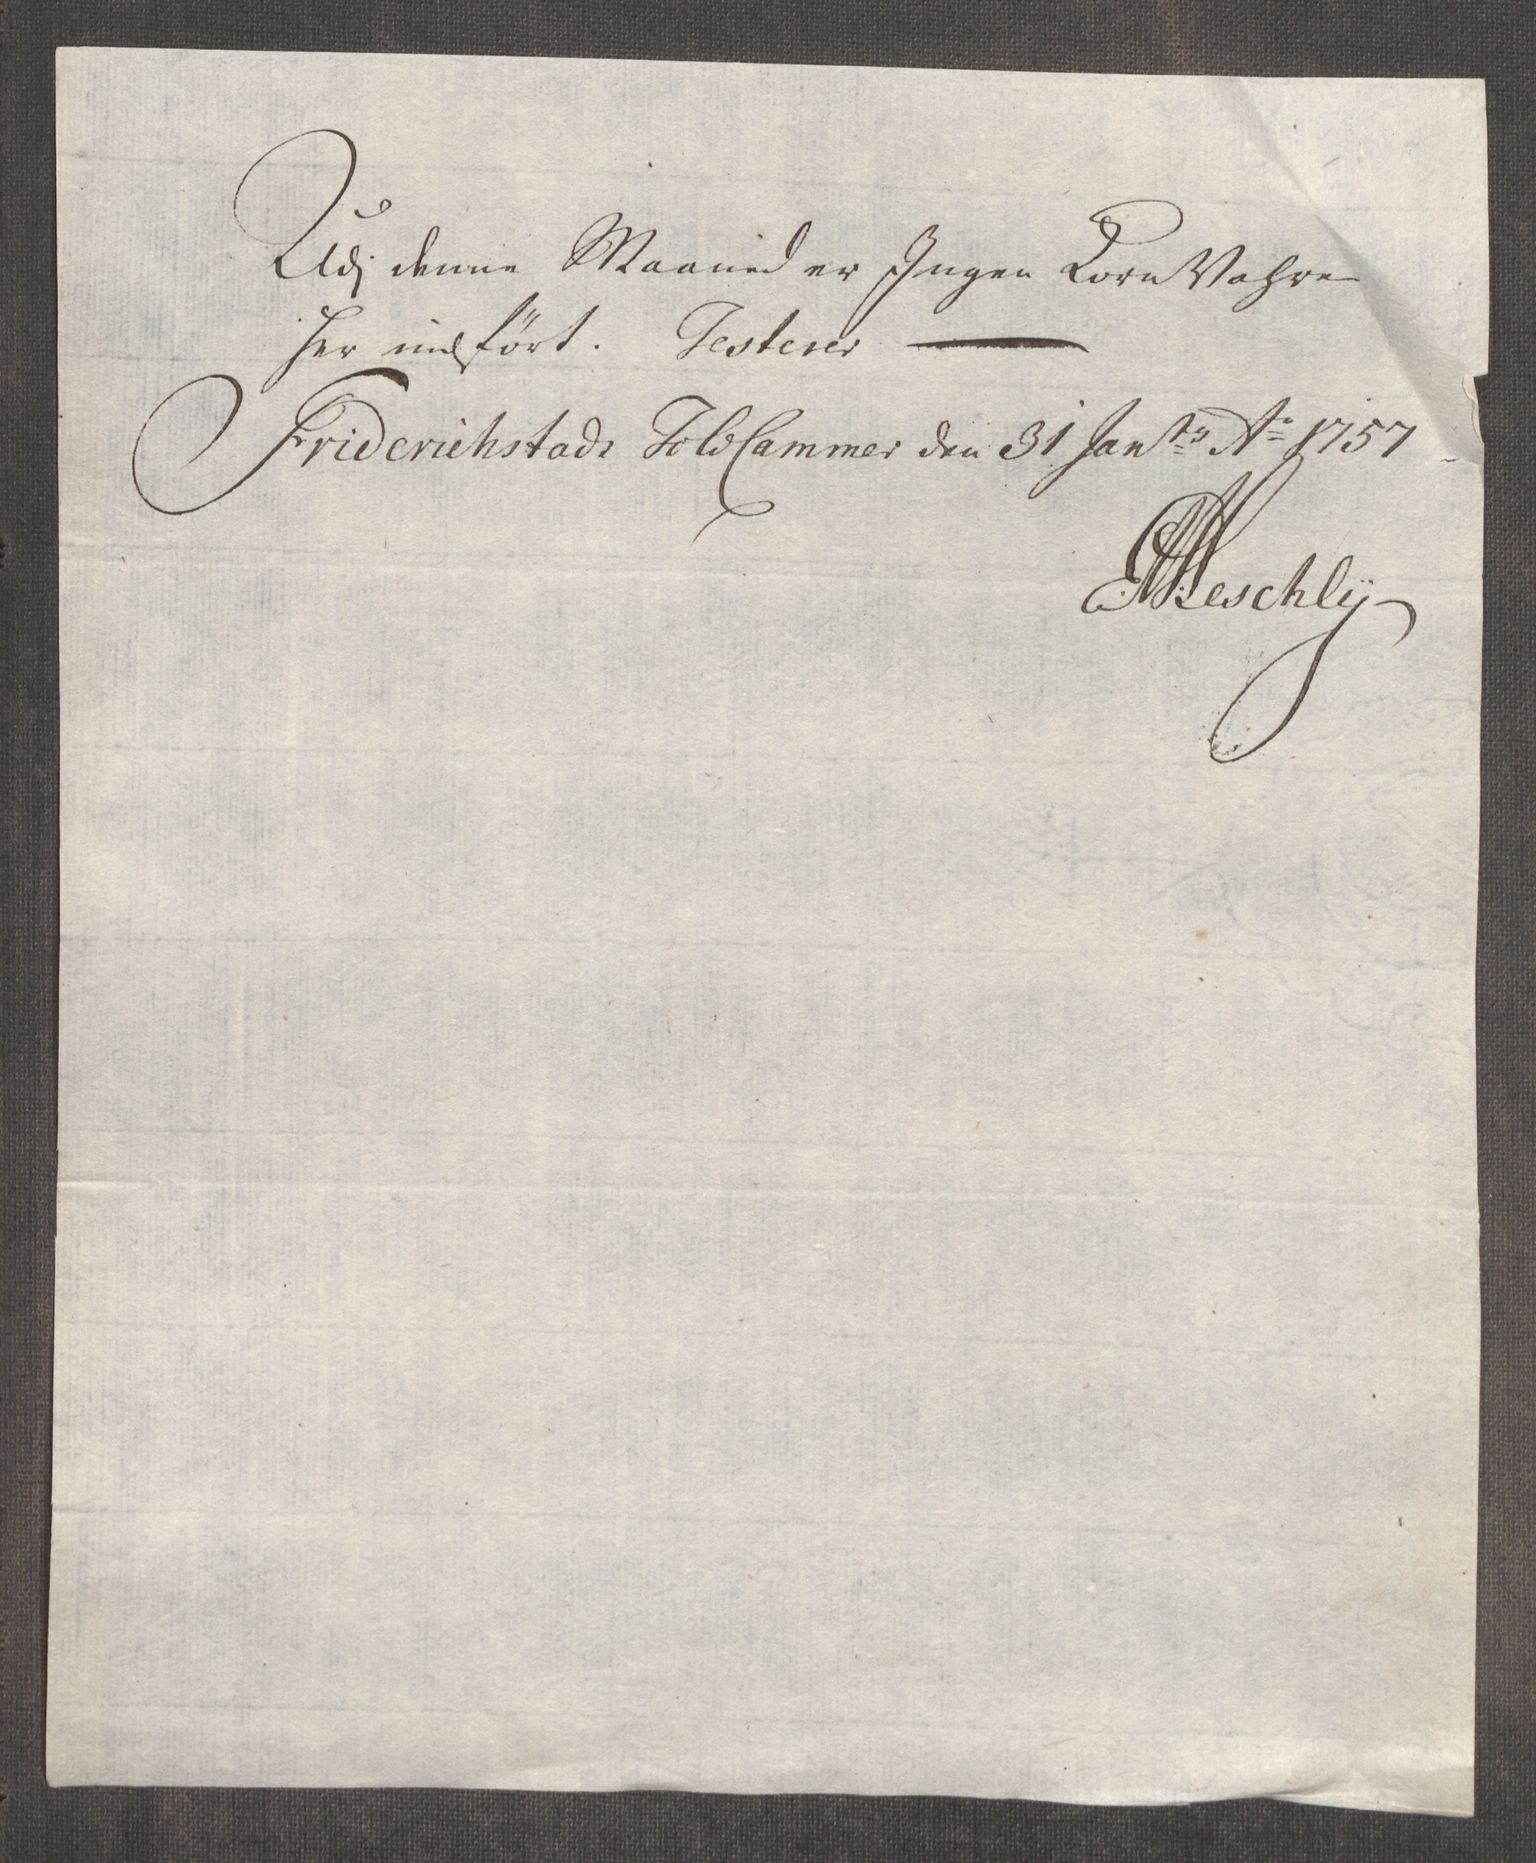 Udj denne Maaned er Ingen Korn Vahre
her indfört. Testerer
Friderichstads Told Cammer den 31 Janrij Ao 1757